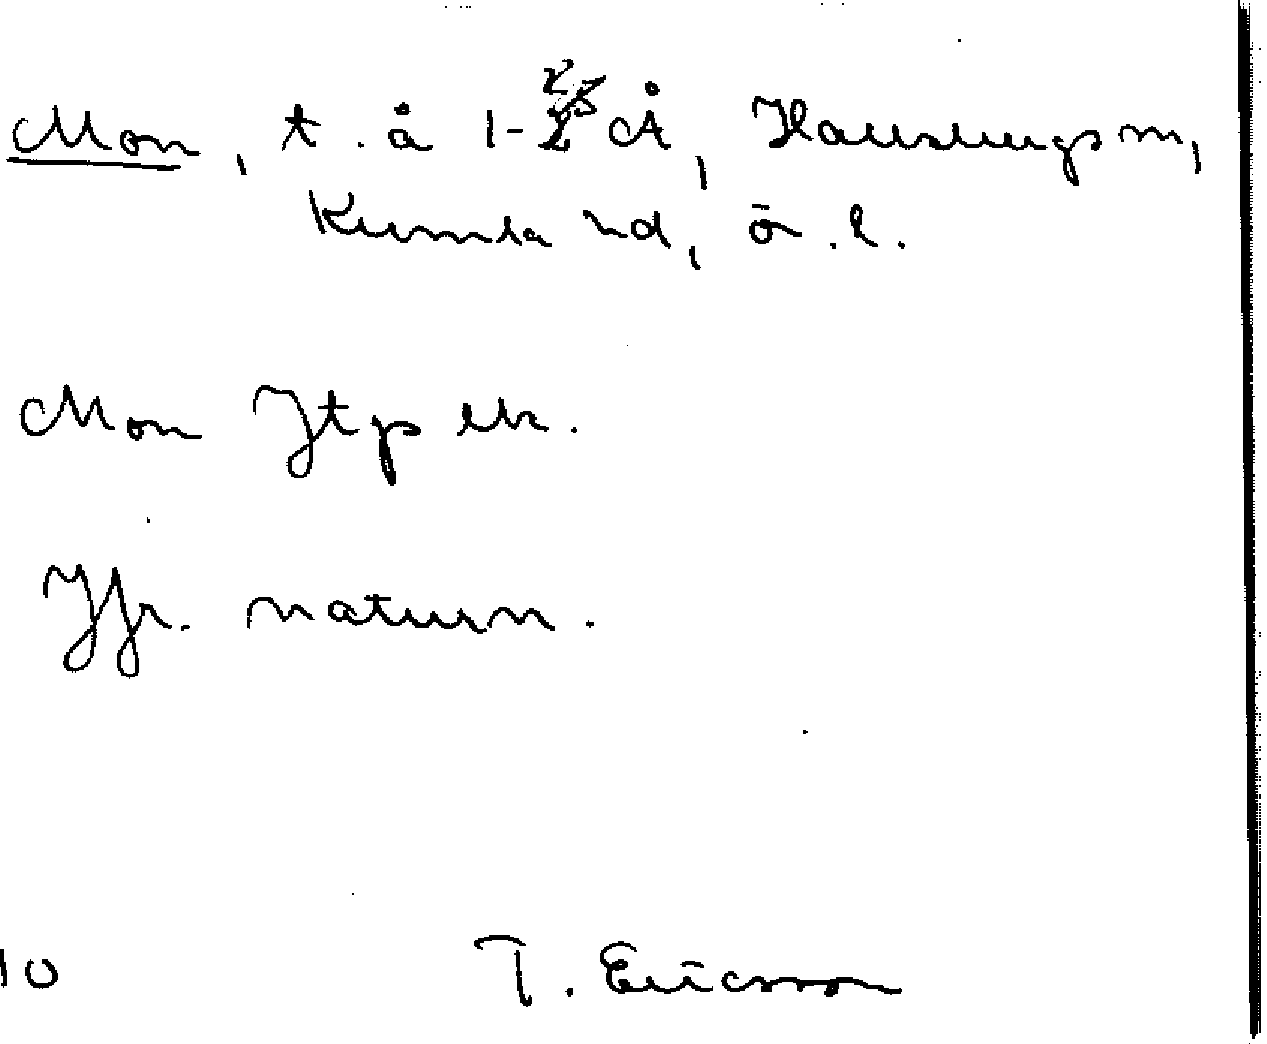 Mon, t. å 1-2 Å, Hallsbergs m,
Kumla hd, ö. l.
Mon Jtp ek.
Jfr. naturn.
10 T. Ericsson